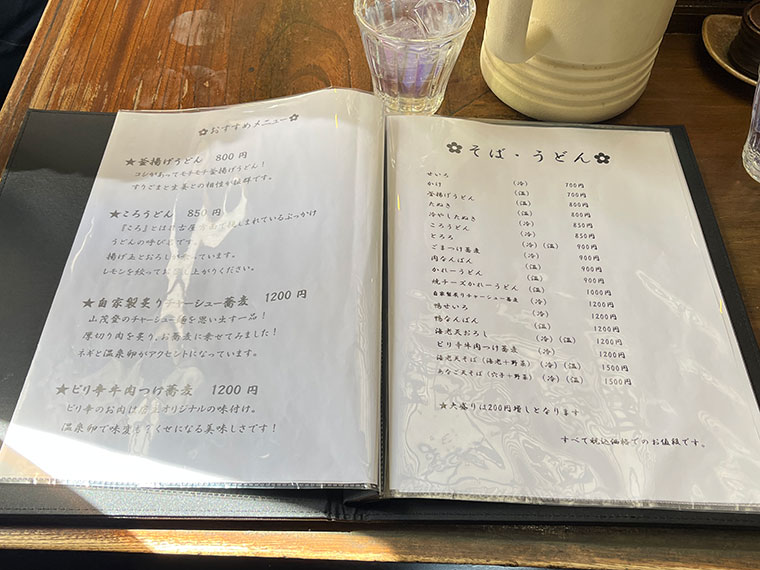 ✿おすすめメニュー✿
★釜揚げうどん 800円
コシがあってモチモチ釜揚げうどん！
すりごまと生姜との相性が抜群です。
★ころうどん 850円
『ころ』とは名古屋で
うどんの呼び名です。
揚げ玉とおろしが
レモンを絞ってお召し上がりください。
★自家製炙りチャーシュー蕎麦 1200円
山茂登のチャーシュー麺を思い出す一品！
厚切り肉を炙り、お蕎麦に乗せてみました！
ネギと温泉卵がアクセントになっています。
★ピリ辛牛肉つけ蕎麦 1200円
ピリ辛のお肉は オリジナルの味付け。
温泉卵で味変も くせになる美味しさです！
✿そば・うどん✿
せいろ (冷) 700円
かけ (温) 700円
釜揚げうどん (温) 800円
たぬき (温) 800円
冷やしたぬき (冷) 850円
ころうどん (冷) 850円
とろろ (冷)(温) 900円
ごまつけ蕎麦 (冷) 900円
肉なんばん (温) 900円
かれーうどん (温) 900円
焼チーズかれーうどん (温) 1000円
自家製炙りチャーシュー蕎麦 (冷) 1200円
鴨せいろ (冷) 1200円
鴨なんばん (温) 1200円
海老天おろし (冷) 1200円
ピリ辛牛肉つけ蕎麦 (冷) 1200円
海老天そば(海老+野菜) (冷)(温) 1500円
あなご天そば(穴子+野菜) (冷)(温) 1500円
★大盛りは200円増しとなります
すべて税込価格でのお値段です。